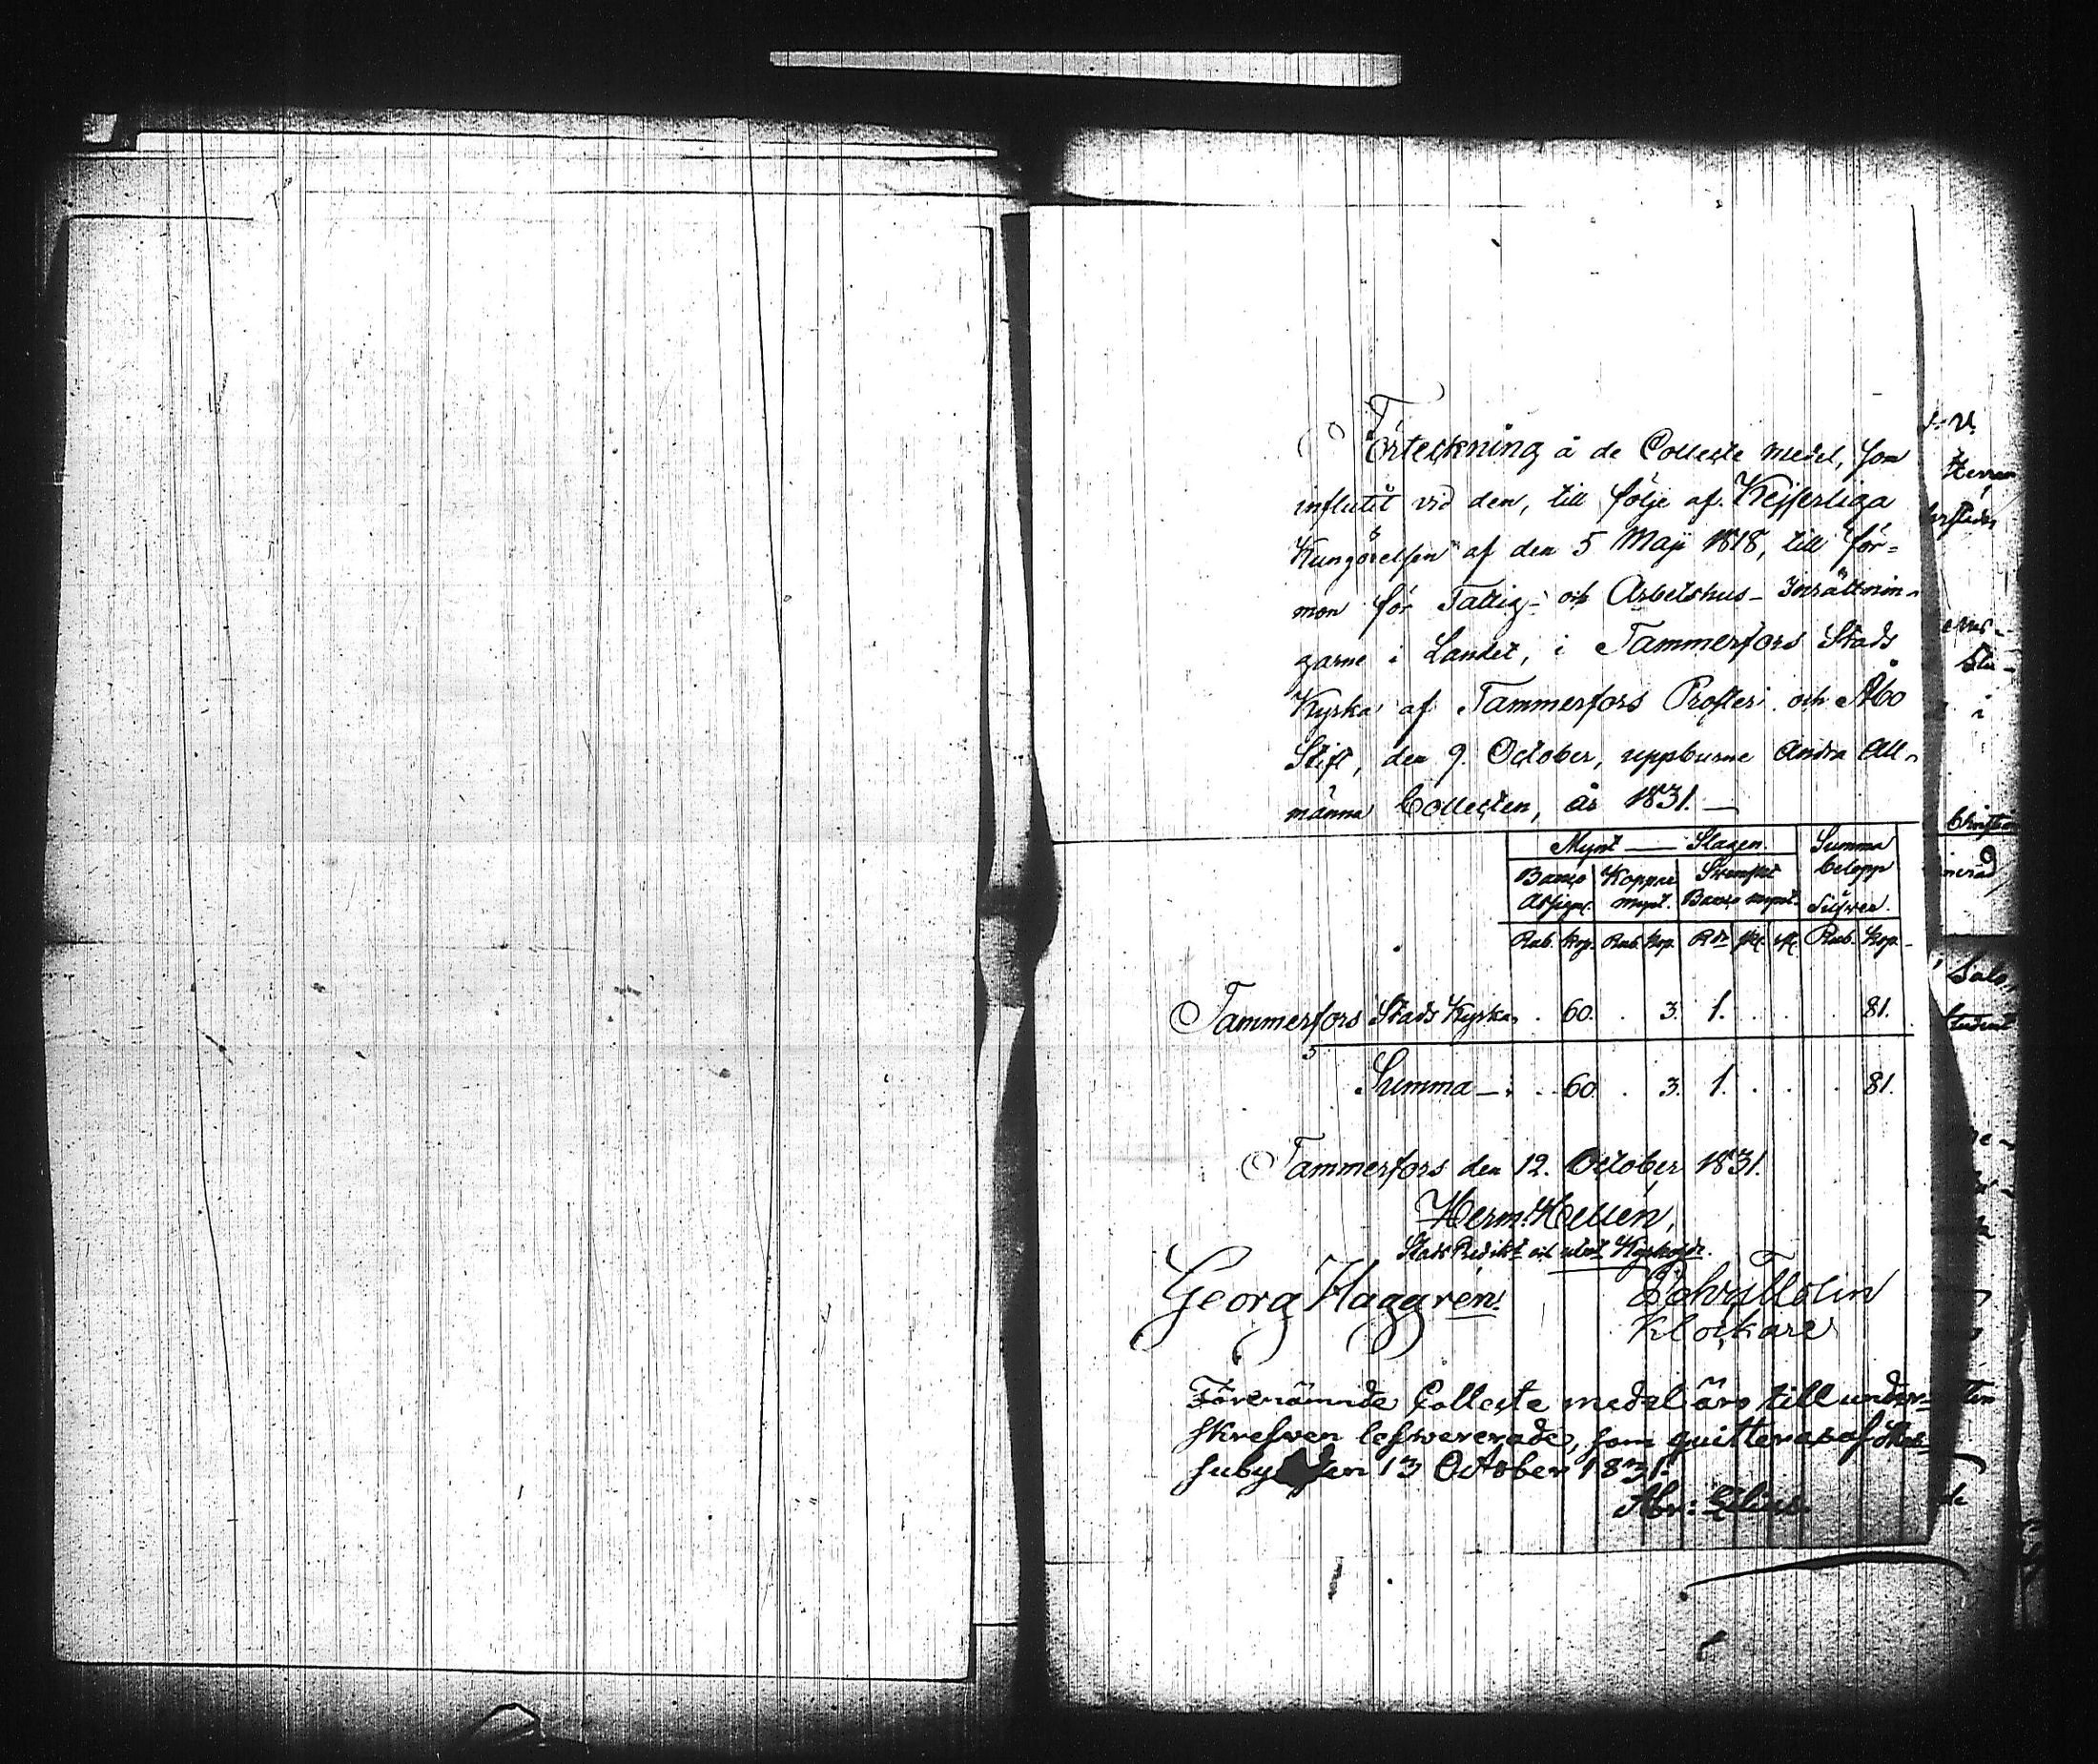 Förteckning å de Collecte medel, som
influtit vid den, till följe af Kejserliga
Kungörelsen af den 5 Maji 1818, till för=
mon för Fattig- och Arbetshus- Inrättnin-
garne i Landet, i Tammerfors Stads
Kyrka af Tammerfors Prosteri och Åbo
Stift, den 9. October, uppburne Andra All-
männa Collecten, år 1831. —
Mynt — Slagen. Summa
Banco Koppar Stemplet belopp
Assign. mynt. Banco mynt. Silfwer.
Rub. Kop. Rub. Kop. Rdr sk. rst. Rub. Kop.
Tammerfors Stads Kyrka . 60. . 3. 1. . . . 81.
Summa — . . 60. . 3. 1. . . . 81.
Tammerfors den 12. October 1831.
Herm: Hellén,
Stads Predikt och Kyrkohde.
Georg Haggrén. Molin
Klockare
Förenämnde Collecte medel äro till under=
skrefwen lefwererade, som quitteras af
den 13 October 1831.
Abr: